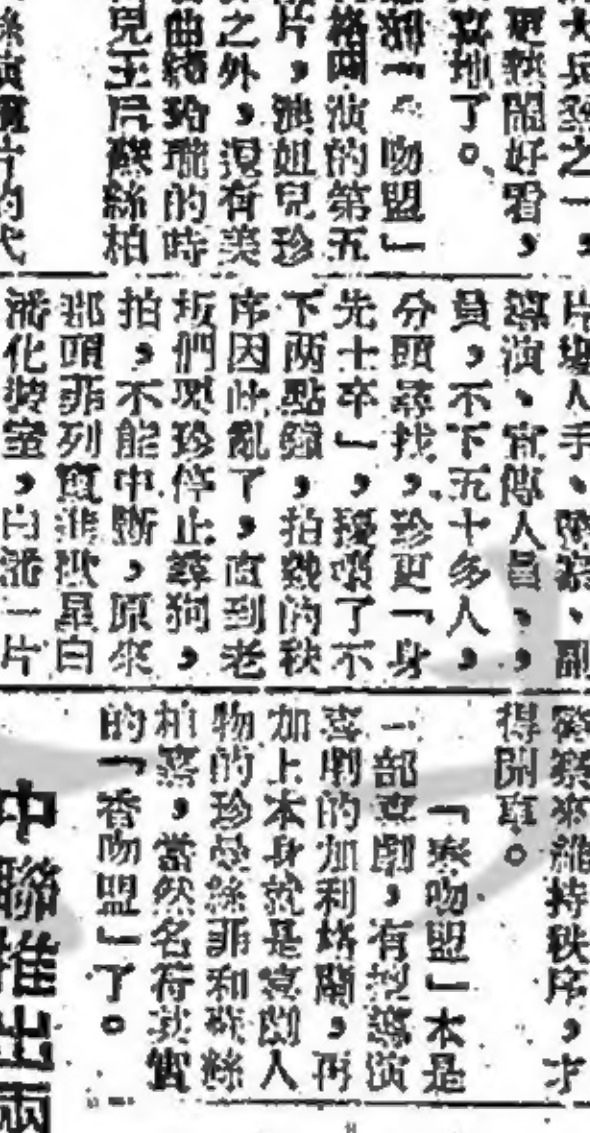 之一，
更熱鬧好看，
地了。
「香吻盟」
格蘭演的第五
片，姐兒珍
之外，還有美
曲線玲瓏的時
兒王后蘇絲柏
絲演片的代
片場人手、副
導演、宣傳人員、，
員，不下五十多人，
分頭尋找，珍更「身
先士卒」，擾攘了不
下两點鐘，拍戲的秩
序因此亂了，直到老
板們珍停止尋狗，
拍，不能中斷，原來
那頭菲列是白
化裝室，白一片
警察來維持秩序，才
得開車。
「香吻盟」本是
一部喜劇，有導演
喜劇的加利格蘭，再
加上本身就是喜劇人
物的珍曼絲菲和蘇絲
柏，當然名符其實
的「香吻盟」了。
中聯推出兩